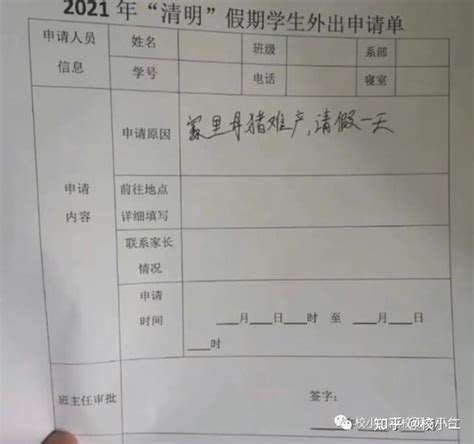 2021 年“清明”假期学生外出申请单
申请人员 姓名 班级 系部
信息 学号 电话 寝室
申请原因 家里母猪难产,请假一天
申请 前往地点
内容 详细填写
联系家长
情况
申请
时间 ___月___日___时 至 ___月___日
___时
班主任审批 签字:
知乎 @校小红